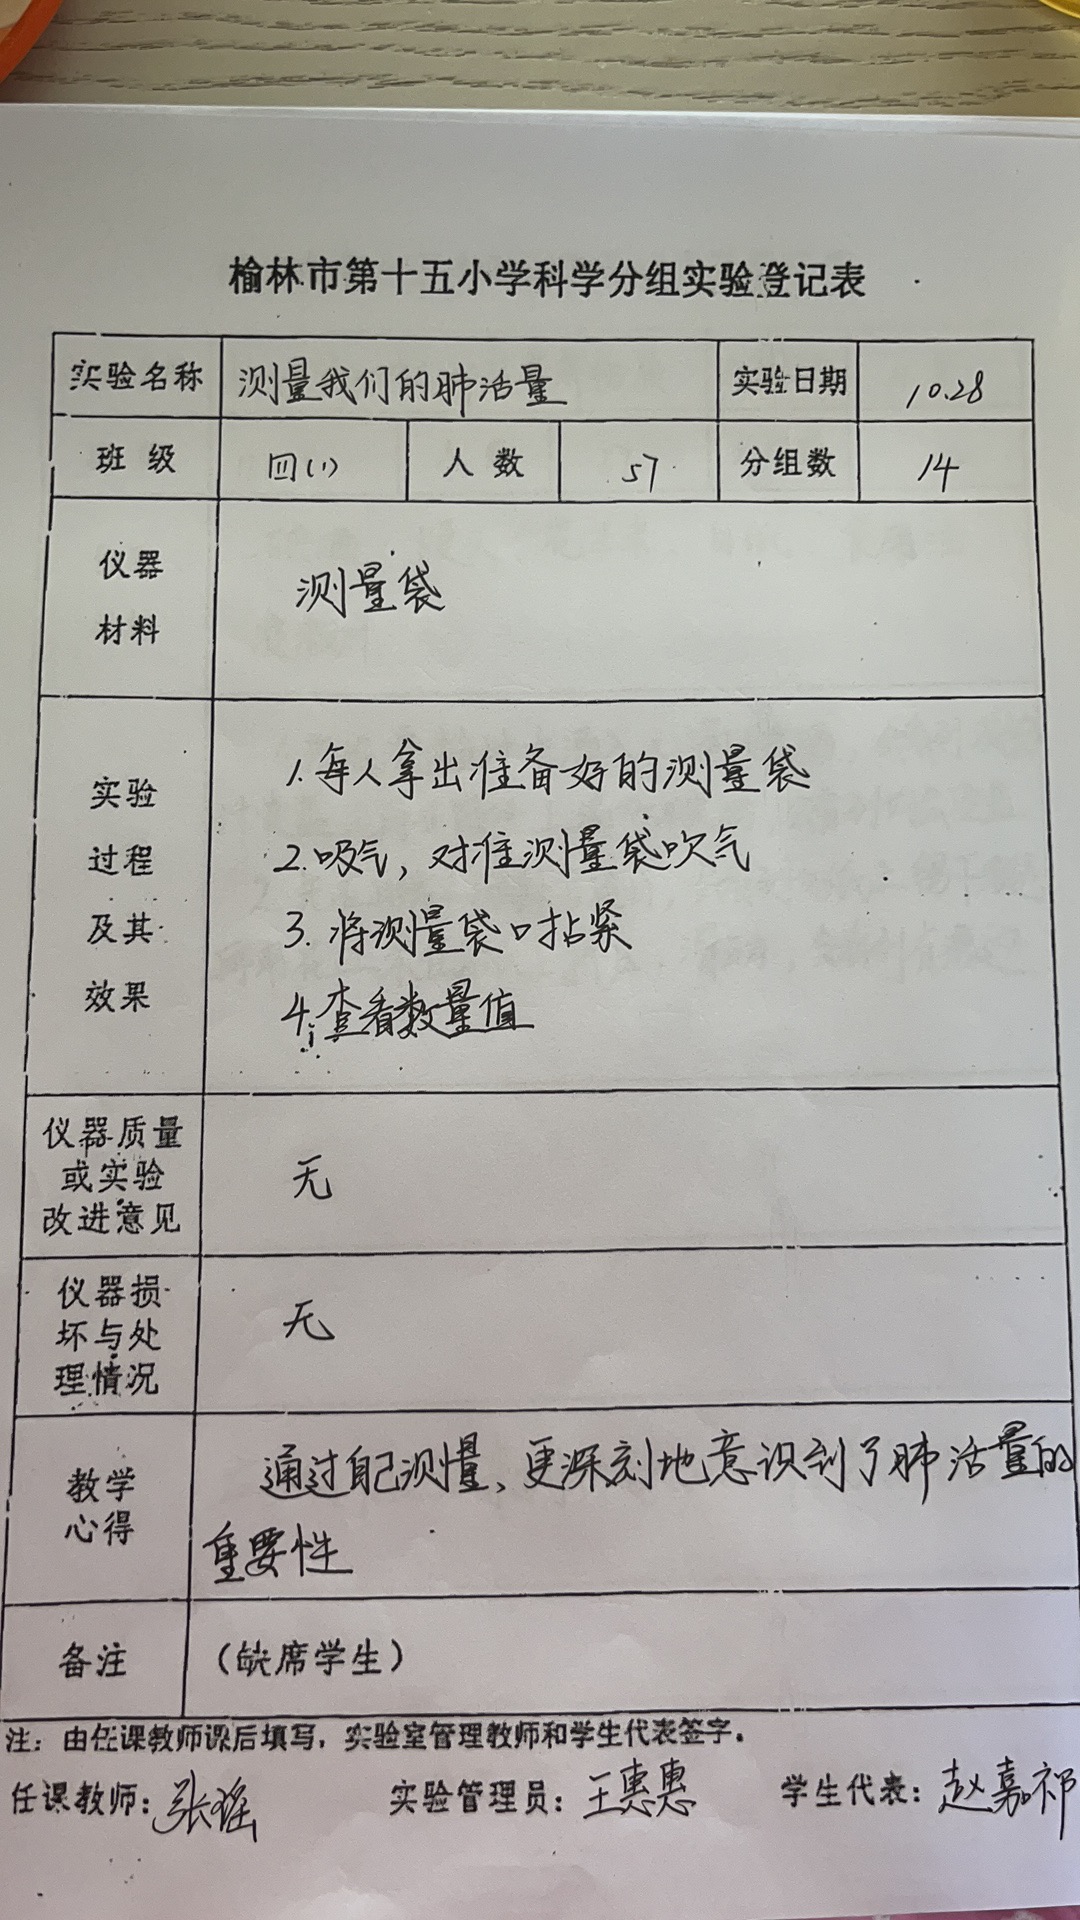 榆林市第十五小学科学分组实验登记表
实验名称 测量我们的肺活量 实验日期 10.28
班级 四(1) 人数 57 分组数 14
仪器
材料
测量袋
实验
过程
及其
效果
1.每人拿出准备好的测量袋
2.吸气,对准测量袋吹气
3.将测量袋口拈紧
4.查看数量值
仪器质量
或实验
改进意见
无
仪器损
坏与处
理情况
无
教学
心得
通过自己测量、更深刻地意识到了肺活量的
重要性
备注 (缺席学生)
注:由任课教师课后填写,实验室管理教师和学生代表签字.
任课教师:张瑶 实验管理员:王惠惠 学生代表:赵嘉祁